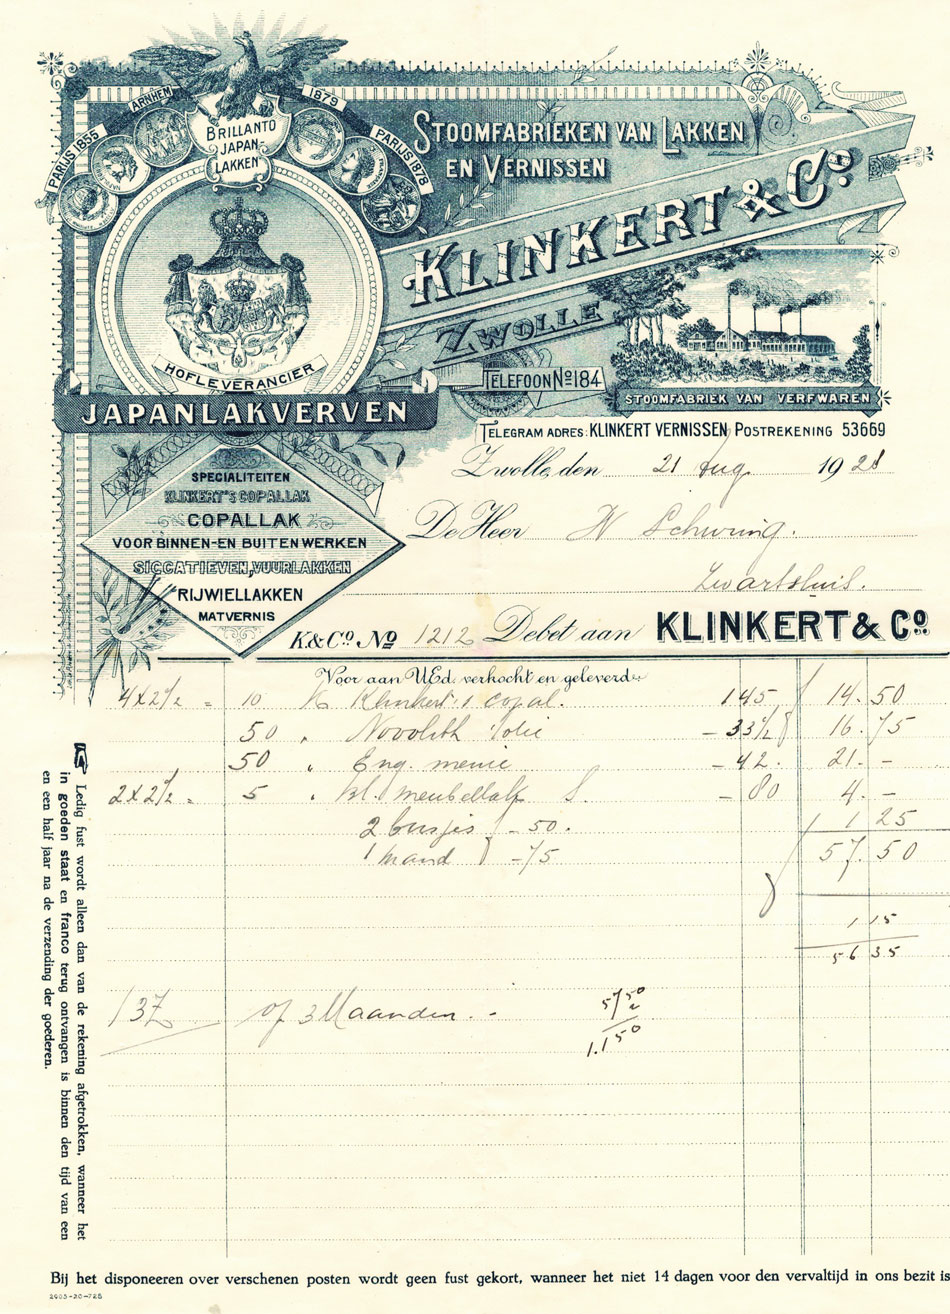 PARIJS 1855
ARNHEM
1879
PARIJS 1878
BRILLANTO
JAPAN
LAKKEN
STOOMFABRIEKEN VAN LAKKEN
EN VERNISSEN
KLINKERT & Co.
ZWOLLE
HOFLEVERANCIER
TELEFOON No 184
JAPANLAKVERVEN
STOOMFABRIEK VAN VERFWAREN
TELEGRAM ADRES: KLINKERT VERNISSEN, POSTREKENING 53669
Zwolle, den 21 Aug 1928
SPECIALITEITEN
KLINKERT'S COPALLAK
COPALLAK
VOOR BINNEN- EN BUITENWERKEN
SICCATIEVEN, VUURLAKKEN
RIJWIELLAKKEN
MATVERNIS
De Heer H Schuring.
Zwartsluis.
K. & Co. No 1212 Debet aan KLINKERT & Co.
Voor aan UEd. verkocht en geleverd:
4 x 2 1/2 = 10 K Klinkert's copal. 145 14.50
50 " Novolith olie - 33 1/2 16.75
50 " Eng. menie - 42. 21.-
2 x 2 1/2 = 5 " bl. meubellak S. - 80 4.-
2 busjes - 50. 1 25
1 mand - 75 57.50
1 15
56 35
137 of 3 Maanden. -
5750
2
1.150
Ledig fust wordt alleen dan van de rekening afgetrokken, wanneer het
in goeden staat en franco terug ontvangen is binnen den tijd van een
en een half jaar na de verzending der goederen.
Bij het disponeeren over verschenen posten wordt geen fust gekort, wanneer het niet 14 dagen voor den vervaltijd in ons bezit is
2603-20-728